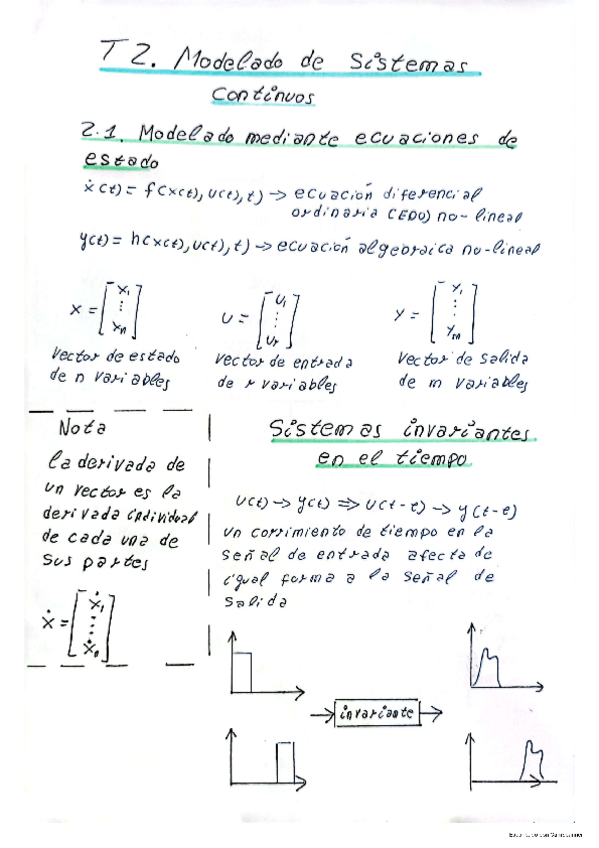 T2. Modelado de sistemas
continuos
2.1. Modelado mediante ecuaciones de
estado
ẋ(t) = f(x(t), u(t), t) → ecuación diferencial
ordinaria (EDO) no-lineal
y(t) = h(x(t), u(t), t) → ecuación algebraica no-lineal
x = [x₁ ⋮ xₙ]
u = [u₁ ⋮ uᵣ]
y = [y₁ ⋮ yₘ]
Vector de estado
de n variables
Vector de entrada
de r variables
Vector de salida
de m variables
Nota
la derivada de
un vector es la
derivada individual
de cada una de
sus partes
ẋ = [ẋ₁ ⋮ ẋₙ]
Sistemas invariantes
en el tiempo
u(t) → y(t) ⇒ u(t-e) → y(t-e)
un corrimiento de tiempo en la
señal de entrada afecta de
igual forma a la señal de
salida
invariante